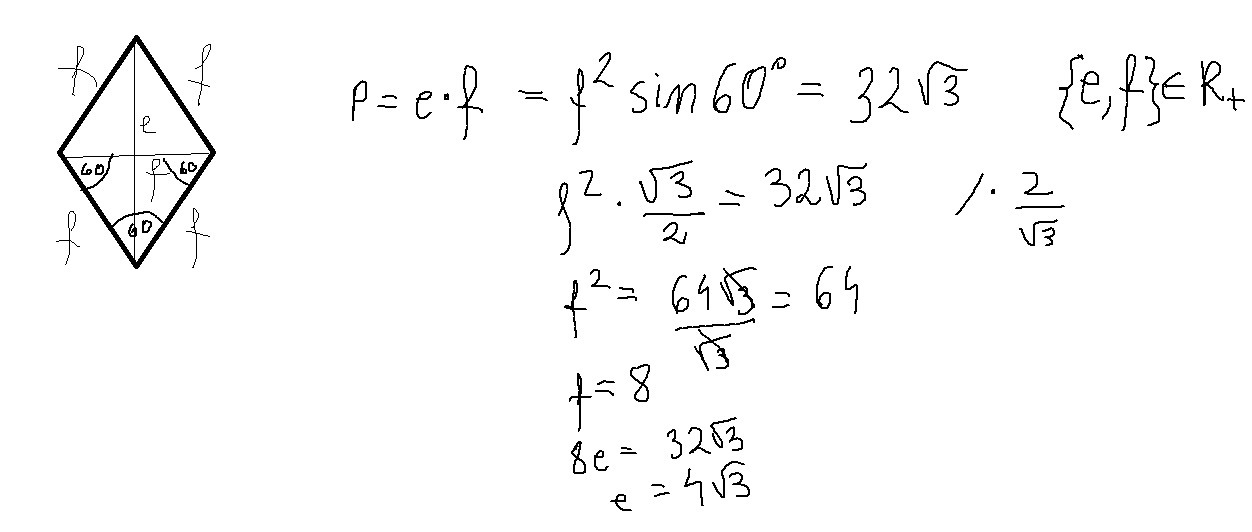 f f
e
60 f 60
60
f f
P = e · f = f² sin 60° = 32√3 {e, f} ∈ R₊
f² · √3/2 = 32√3 / · 2/√3
f² = 64√3/√3 = 64
f = 8
8e = 32√3
e = 4√3